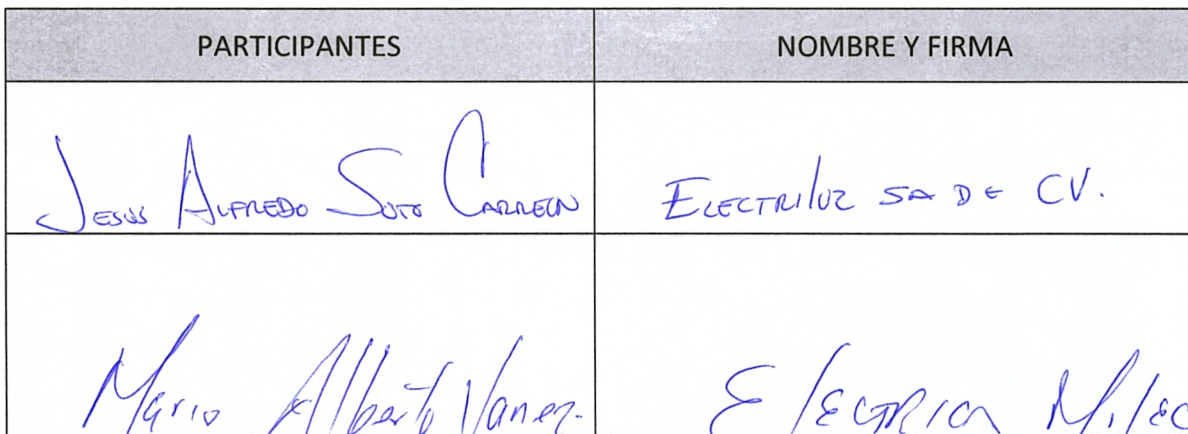 PARTICIPANTES
NOMBRE Y FIRMA
JESUS ALFREDO SOTO CARREON
ELECTRILUZ SA DE CV.
Mario Alberto Yanez.
ELECTRICA Milec